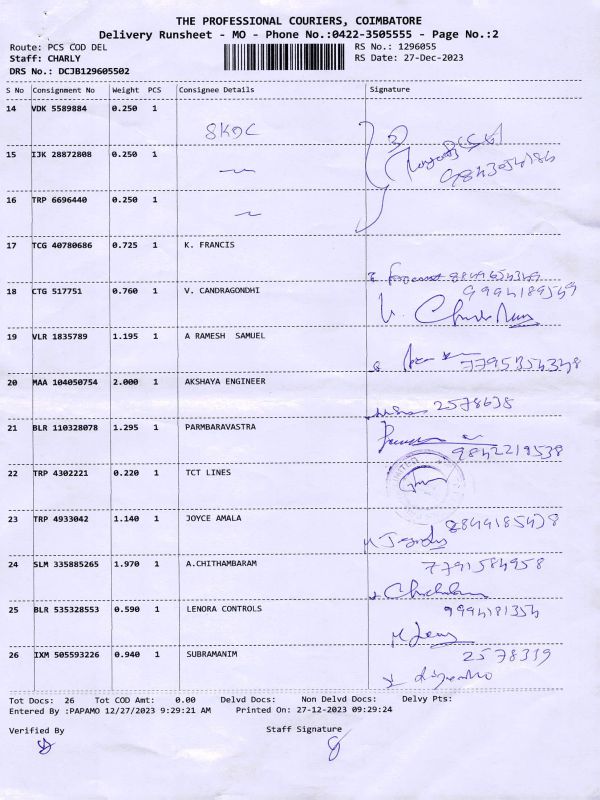 THE PROFESSIONAL COURIERS, COIMBATORE
Delivery Runsheet - MO - Phone No.:0422-3505555 - Page No.:2
Route: PCS COD DEL RS No.: 1296055
Staff: CHARLY RS Date: 27-Dec-2023
DRS No.: DCJB129605502
S No Consignment No Weight PCS Consignee Details Signature
14 VDK 5589884 0.250 1
SKDC
15 IJK 28872808 0.250 1
16 TRP 6696440 0.250 1
17 TCG 40780686 0.725 1 K. FRANCIS
18 CTG 517751 0.760 1 V. CANDRAGONDHI
19 VLR 1835789 1.195 1 A RAMESH SAMUEL
20 MAA 104050754 2.000 1 AKSHAYA ENGINEER
2578635
21 BLR 110328078 1.295 1 PARMBARAVASTRA
9842219538
22 TRP 4302221 0.220 1 TCT LINES
23 TRP 4933042 1.140 1 JOYCE AMALA
24 SLM 335885265 1.970 1 A.CHITHAMBARAM
7791584958
25 BLR 535328553 0.590 1 LENORA CONTROLS
9994181354
26 IXM 505593226 0.940 1 SUBRAMANIM
2578339
Tot Docs: 26 Tot COD Amt: 0.00 Delvd Docs: Non Delvd Docs: Delvy Pts:
Entered By :PAPAMO 12/27/2023 9:29:21 AM Printed On: 27-12-2023 09:29:24
Verified By Staff Signature